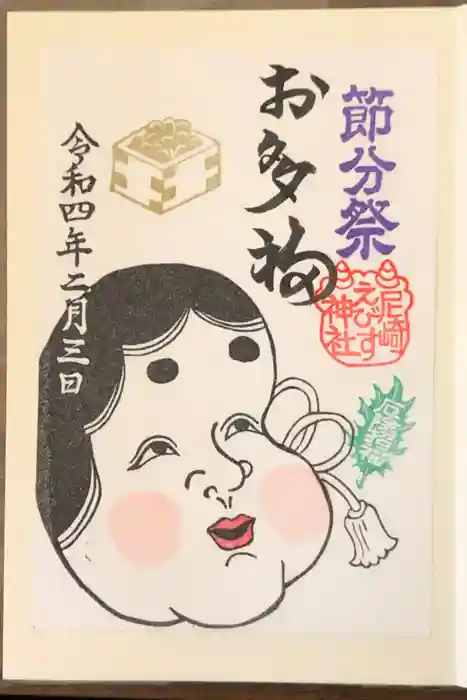 節分祭
お多福
尼崎
えびす
神社
厄除招福
令和四年二月三日